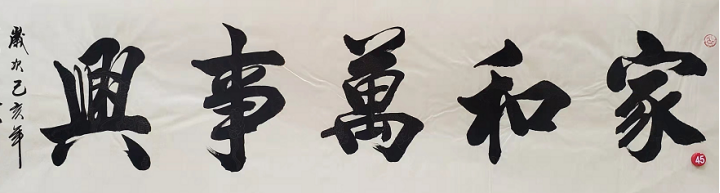 家和萬事興
歲次己亥年
45